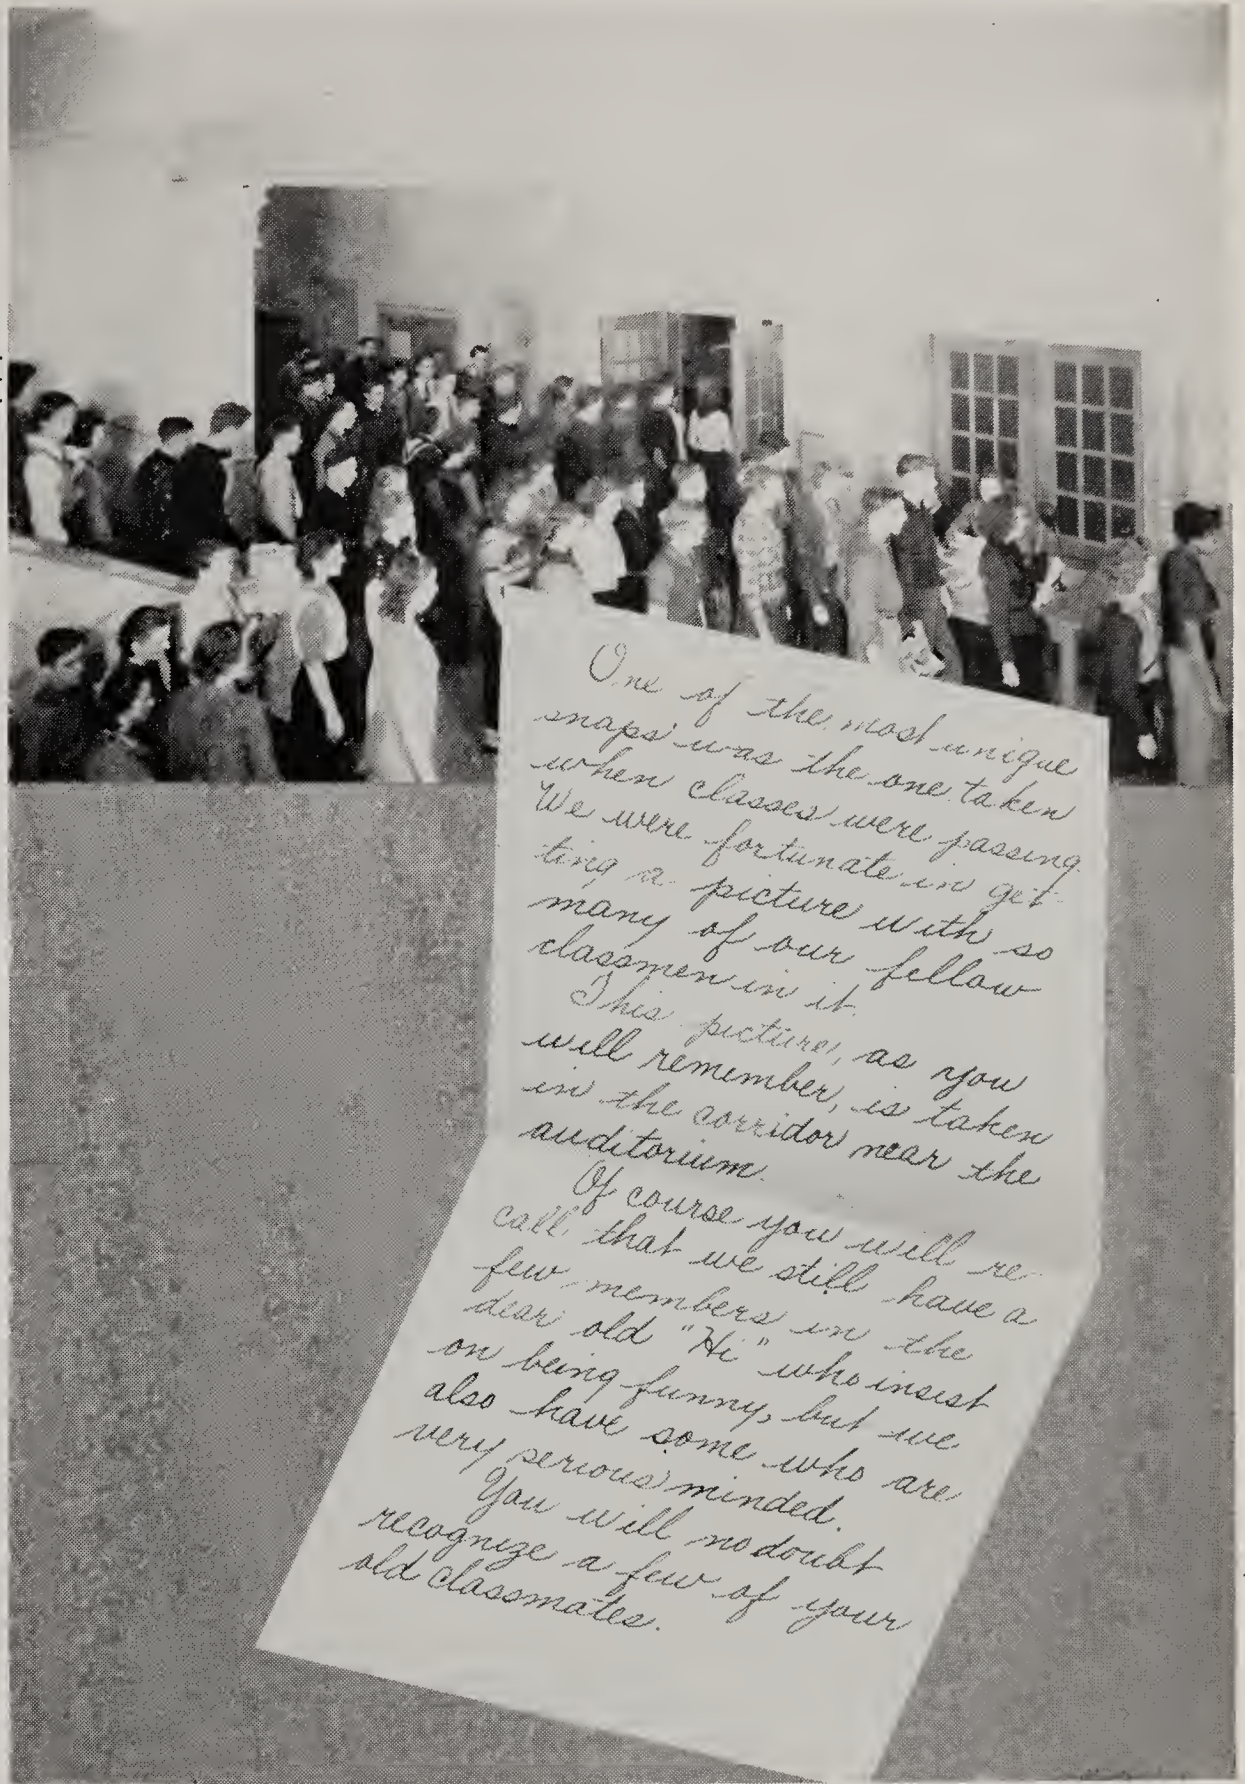 One of the most unique
snaps was the one taken
when classes were passing.
We were fortunate in get-
ting a picture with so
many of our fellow
classmen in it.
This picture, as you
will remember, is taken
in the corridor near the
auditorium.
Of course you will re-
call that we still have a
few members in the
dear old "Hi" who insist
on being funny, but we
also have some who are
very serious minded.
You will no doubt
recognize a few of your
old classmates.